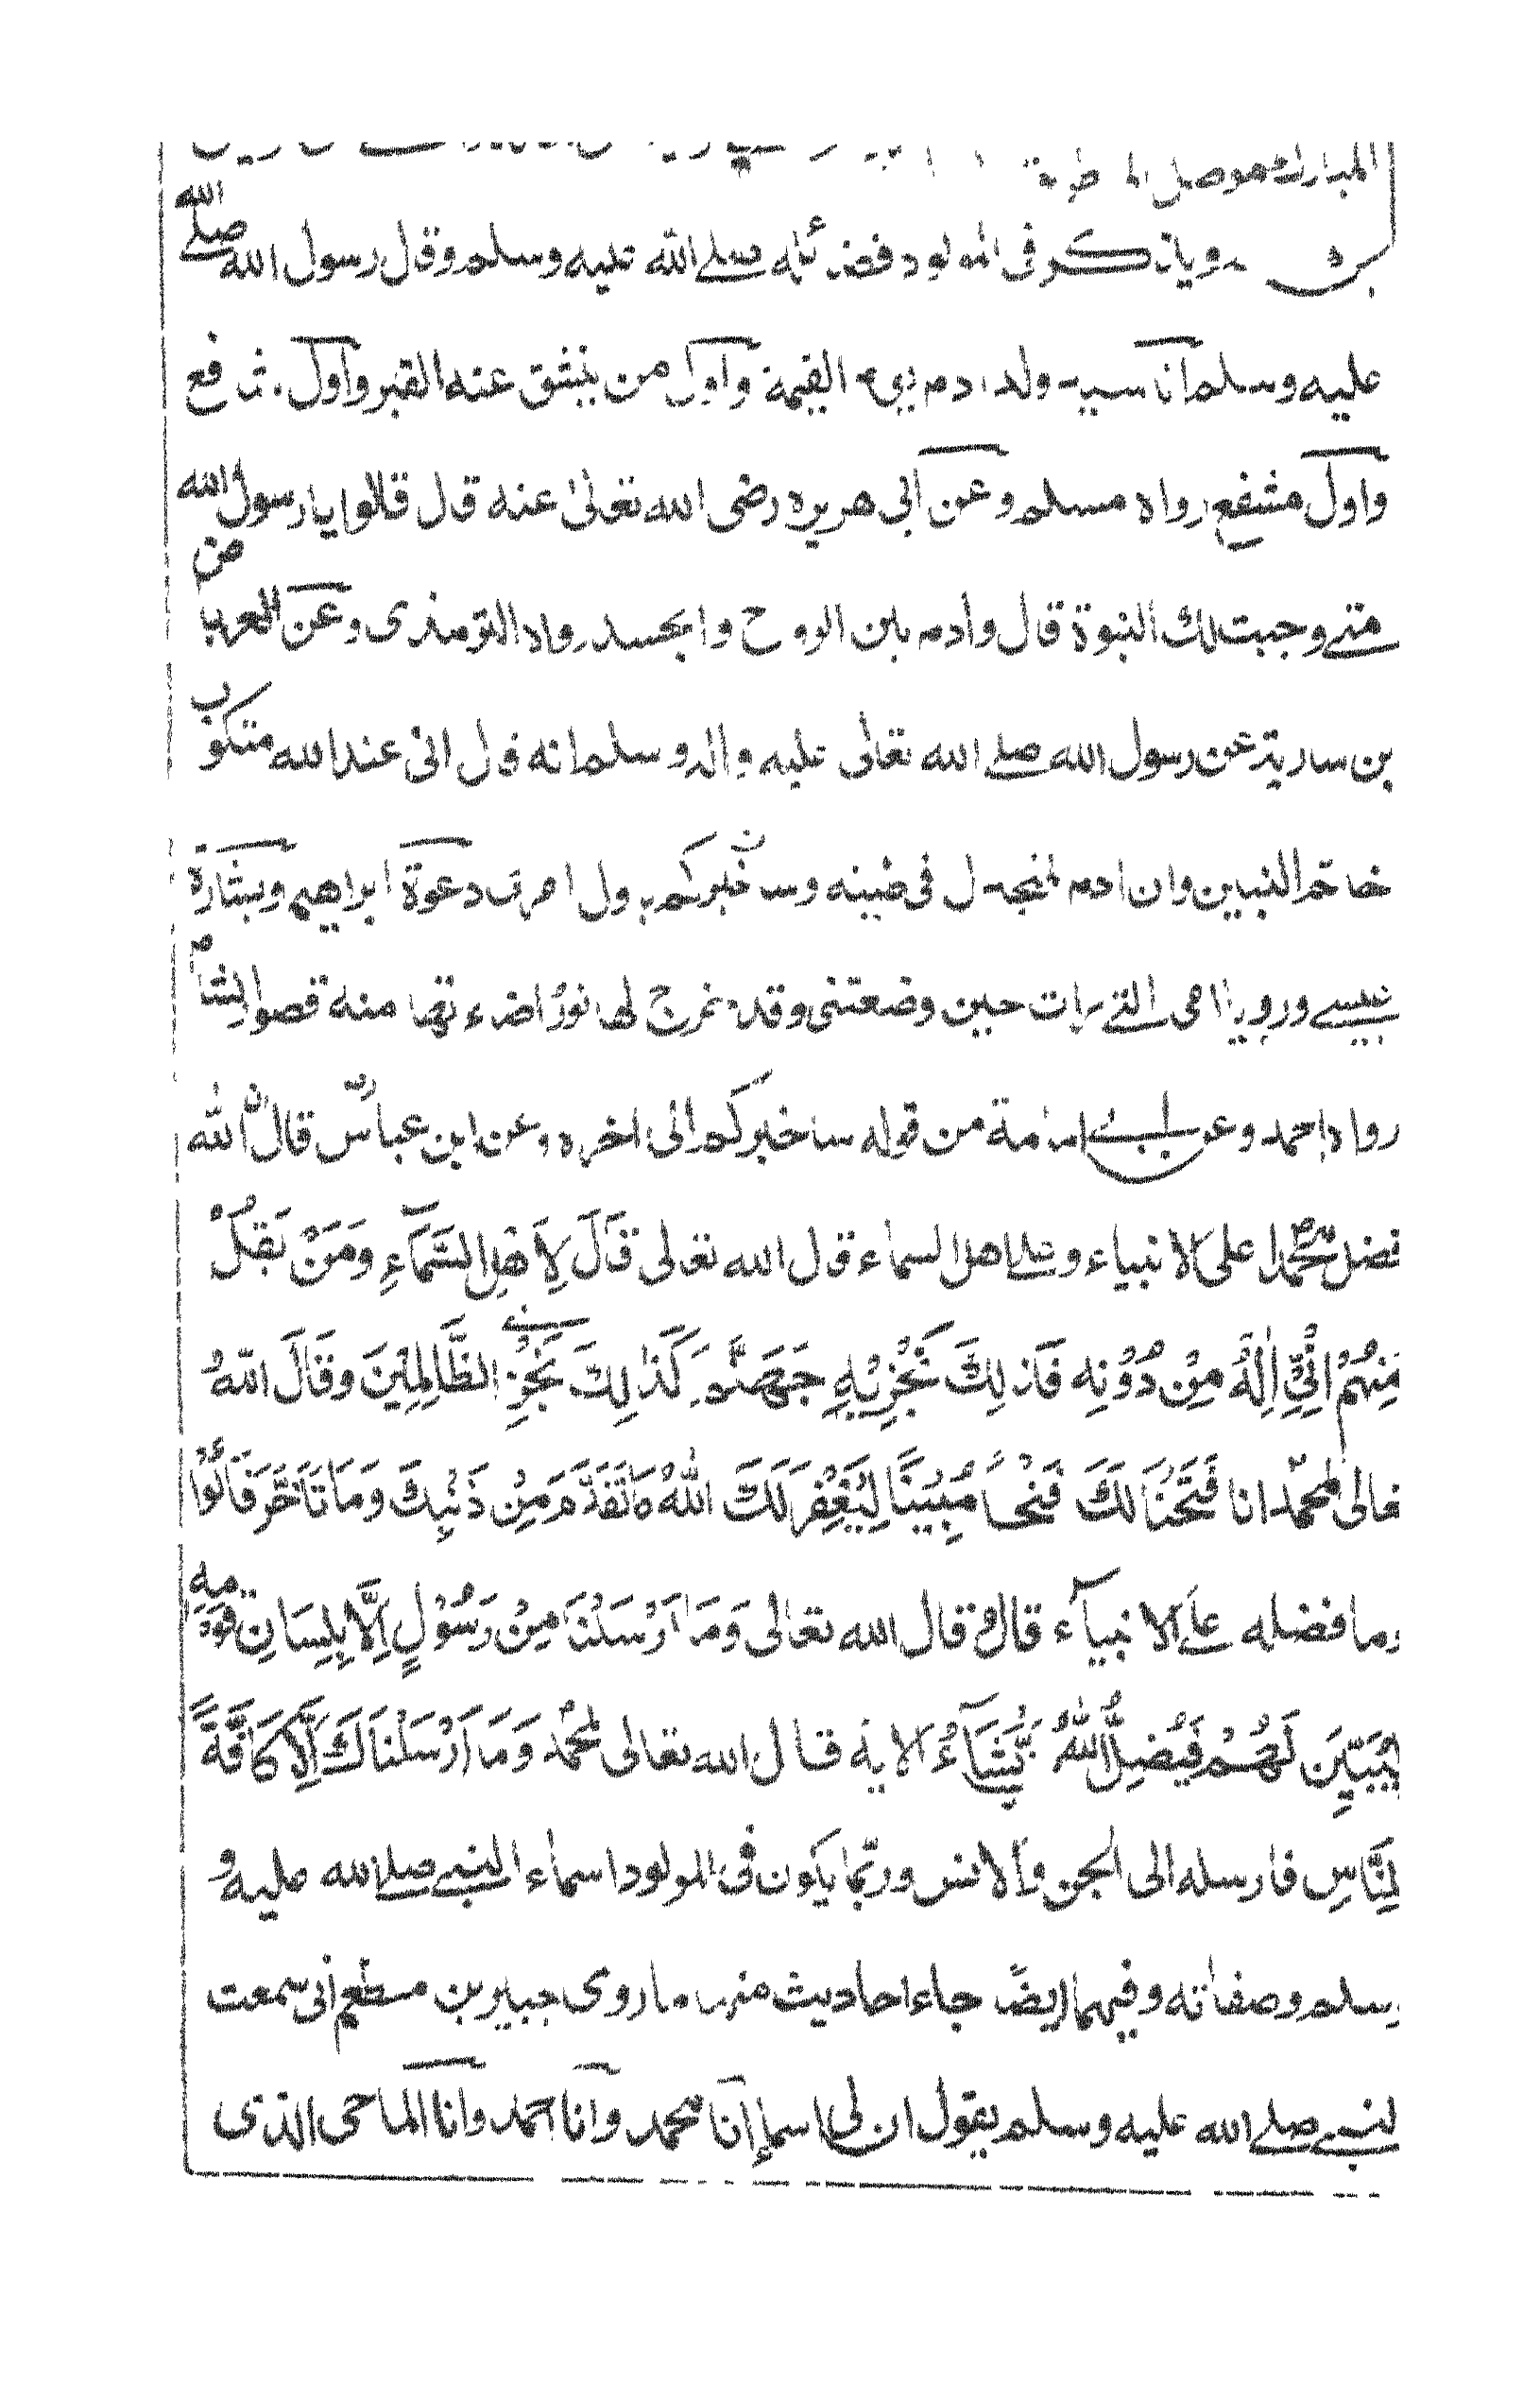 المبارك موصل الى
ويذكر فى المولود فضائله صلے الله عليه وسلم وقال رسول الله صلے الله
عليه وسلم انا سيد ولد ادم يوم القيمة واول من ينشق عنه القبر واول شافع
واول مشفع رواه مسلم وعن ابى هريره رضى الله تعالىٰ عنه قال قالوا يا رسول الله
متے وجبت لك النبوة قال وادم بين الروح والجسد رواه الترمذى وعن العرباض
بن سارية عن رسول الله صلے الله تعالٰى عليه واله وسلم انه قال انى عند الله مكتوب
خاتم النبيين وان ادم لمنجدل فى طينه وساخبركم باول امرى دعوة ابراهيم وبشارة
عيسے ورويا امى التے رات حين وضعتنى وقد خرج لها نورٌ اضاء لها منه قصوالشام
رواه احمد وعن ابے امامة من قوله ساخبركم الى اخره وعن ابن عباسؓ قال ان الله
فضل محمدا على الانبياء وعلے اهل السماء قال الله تعالى قَالَ لِاَهْلِ السَّمَآءِ وَمَنْ يَقُلْ
مِنْهُمْ اِنِّىْ اِلٰهٌ مِنْ دُوْنِهٖ فَذٰلِكَ نَجْزِيْهِ جَهَنَّمَ كَذٰلِكَ نَجْزِے الظَّالِمِيْنَ وَقَالَ اللهُ
تعالى لمحمد انا فَتَحْنَا لَكَ فَتْحًا مُبِيْنًا لِيَغْفِرَ لَكَ اللهُ مَا تَقَدَّمَ مِنْ ذَنْبِكَ وَمَا تَاَخَّرَ قَالُوْا
وما فضله علے الانبيآء قال قال الله تعالى وَمَا اَرْسَلْنَا مِنْ رَسُوْلٍ اِلَّا بِلِسَانِ قَوْمِهٖ
لِيُبَيِّنَ لَهُمْ فَيُضِلُّ اللهُ مَنْ يَّشَآءُ الاية قال الله تعالى لمحمد وَمَا اَرْسَلْنَاكَ اِلَّا كَافَّةً
لِلنَّاسِ فارسله الى الجن والانس وربّما يكون فى المولود اسماء النبے صلے الله عليه و
سلم وصفاته وفيهما ايضًا جاء احاديث منها ما روى جبير بن مطعم انى سمعت
لنبے صلے الله عليه وسلم يقول ان لى اسما انا محمد وانا احمد وانا الماحى الذى